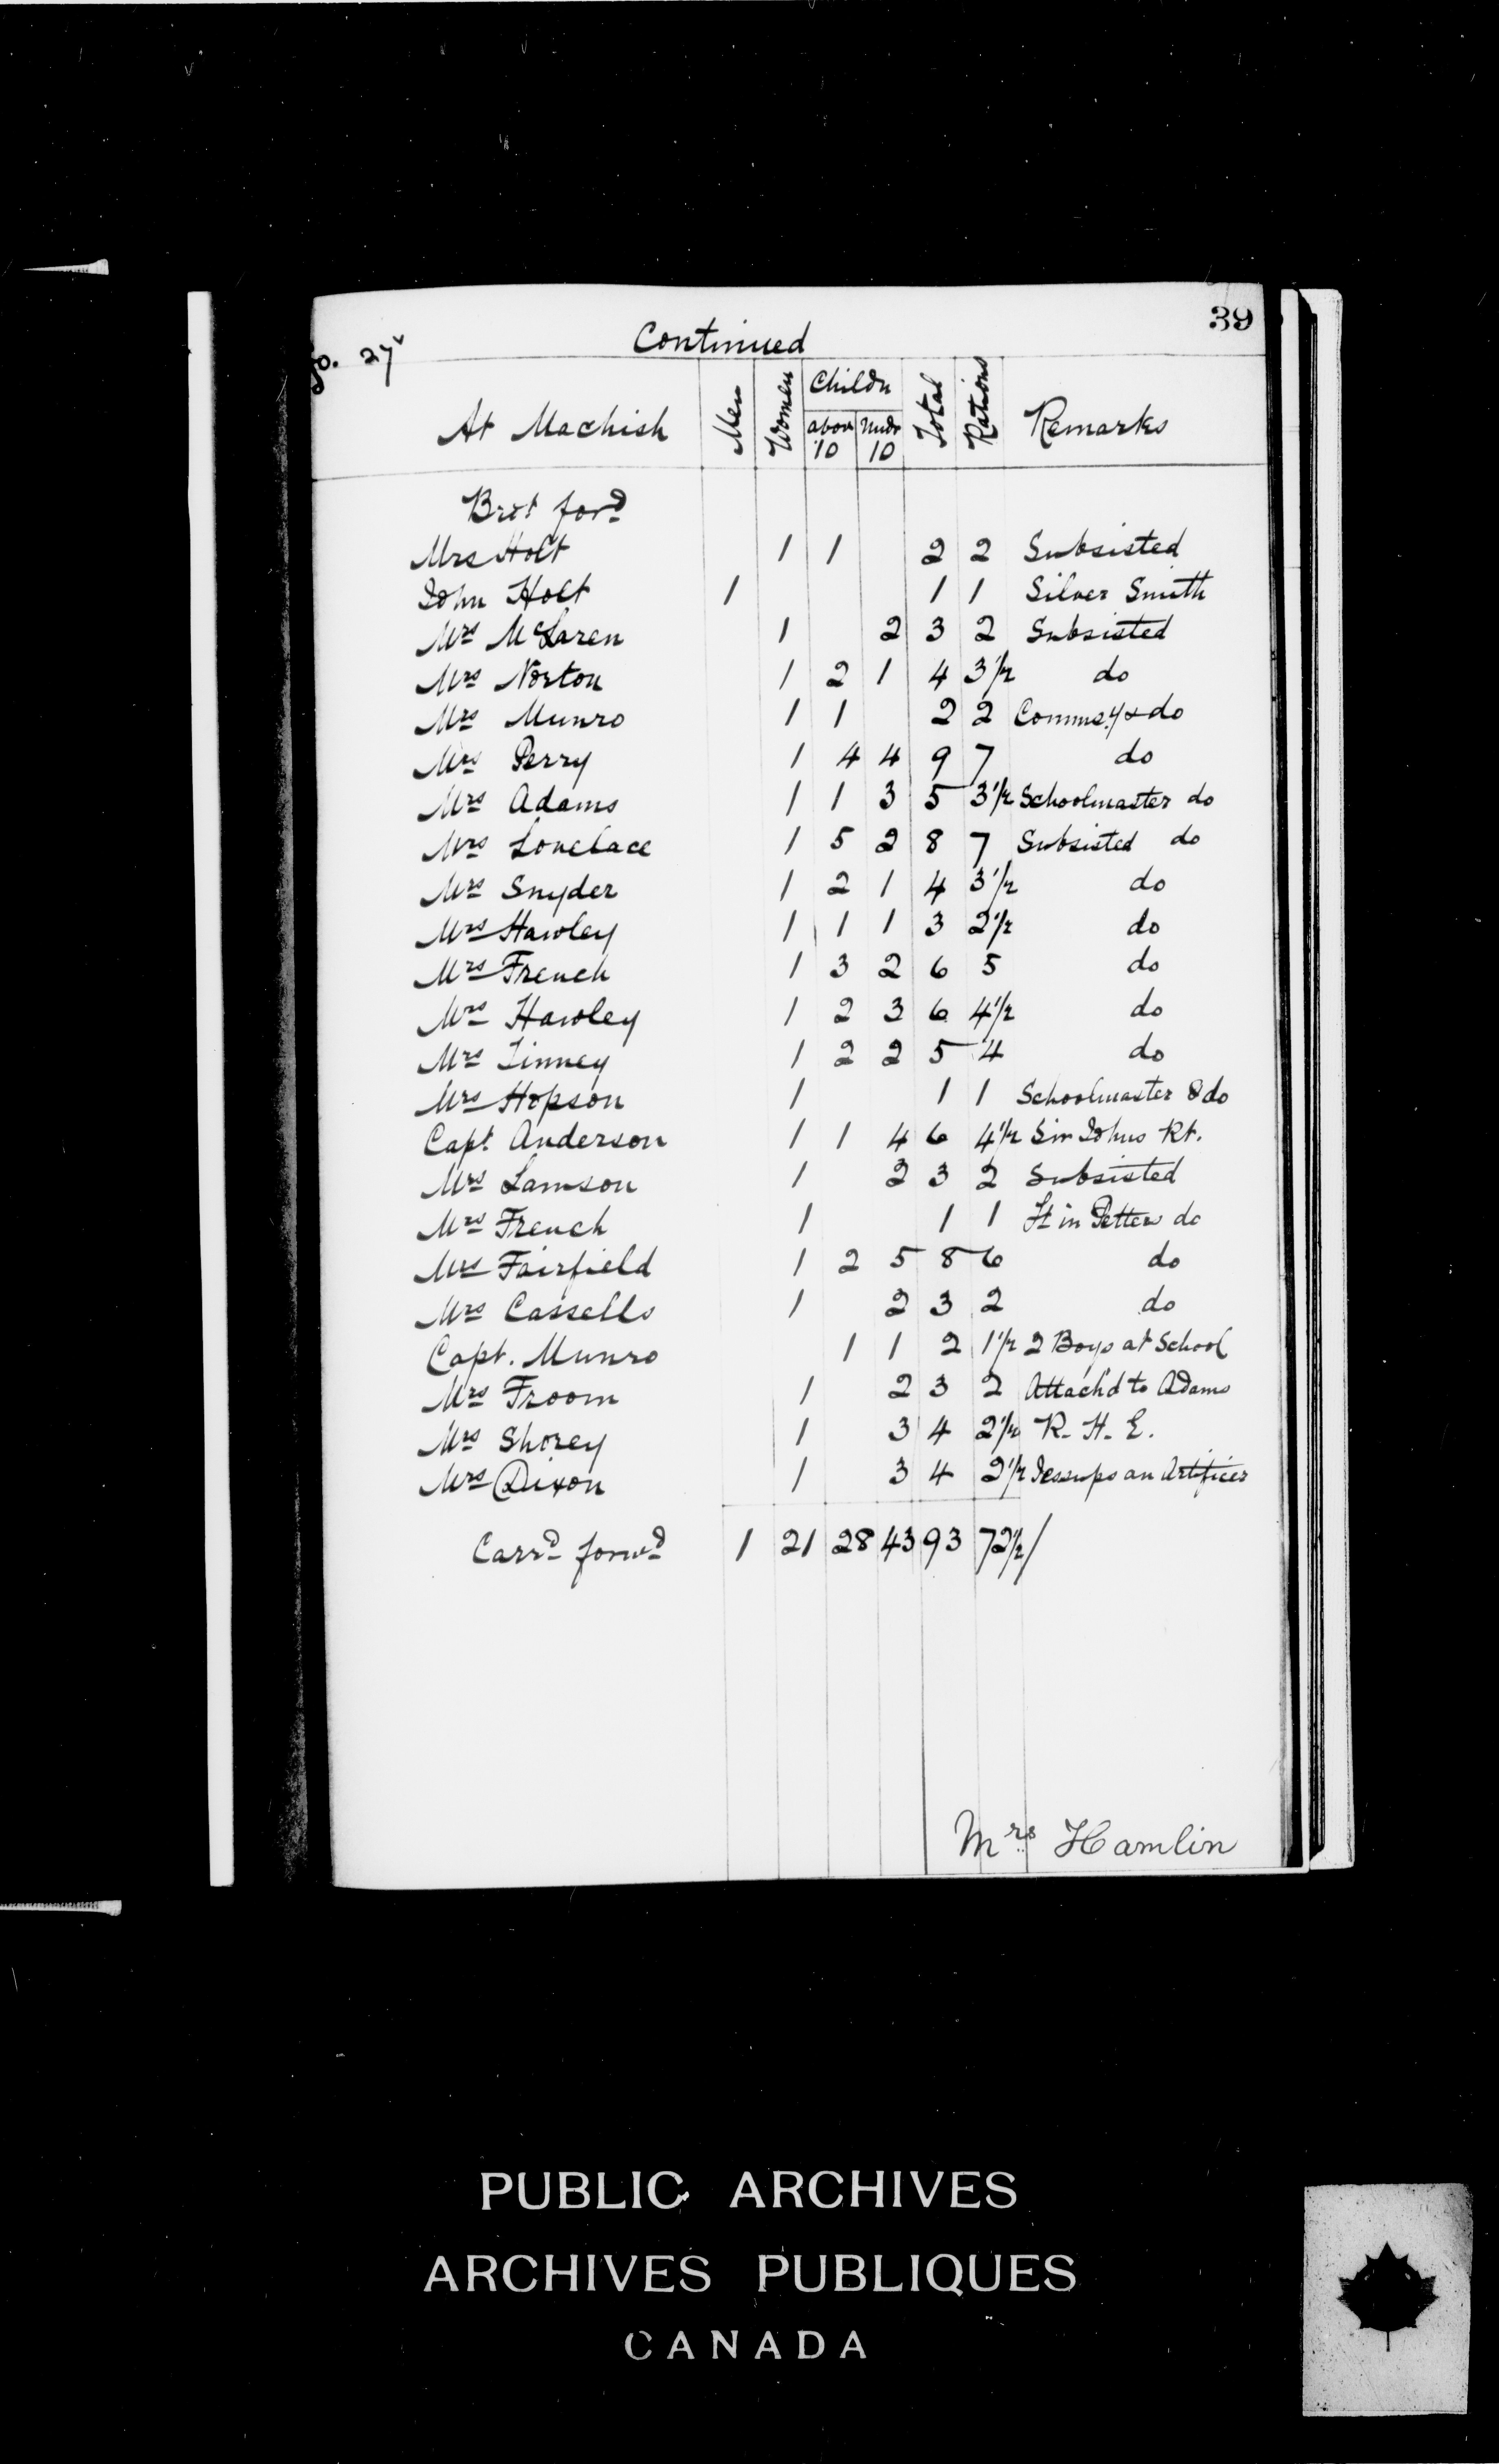 39
fo. 27v
Continued
At Machish Men Women Childn above 10 undr 10 Total Rations Remarks
Brot ford
Mrs Holt 1 1 2 2 Subsisted
John Holt 1 1 1 Silver Smith
Mrs McLaren 1 2 3 2 Subsisted
Mrs Norton 1 2 1 4 3 1/2 do
Mrs Munro 1 1 2 2 Commsy & do
Mrs Perry 1 4 4 9 7 do
Mrs Adams 1 1 3 5 3 1/2 Schoolmaster do
Mrs Lovelace 1 5 2 8 7 Subsisted do
Mrs Snyder 1 2 1 4 3 1/2 do
Mrs Hawley 1 1 1 3 2 1/2 do
Mrs French 1 3 2 6 5 do
Mrs Hawley 1 2 3 6 4 1/2 do
Mrs Finney 1 2 2 5 4 do
Mrs Hopson 1 1 1 Schoolmaster & do
Capt Anderson 1 1 4 6 4 1/2 Sir Johns Rt.
Mrs Lamson 1 2 3 2 Subsisted
Mrs French 1 1 1 Lt in Petters do
Mrs Fairfield 1 2 5 8 6 do
Mrs Cassells 1 2 3 2 do
Capt. Munro 1 1 2 1 1/2 2 Boys at School
Mrs Froom 1 2 3 2 Attach'd to Adams
Mrs Shorey 1 3 4 2 1/2 R. H. E.
Mrs Dixon 1 3 4 2 1/2 Jessups an Artificer
Carrd forwd 1 21 28 43 93 72 1/2 /
Mrs Hamlin
PUBLIC ARCHIVES
ARCHIVES PUBLIQUES
CANADA